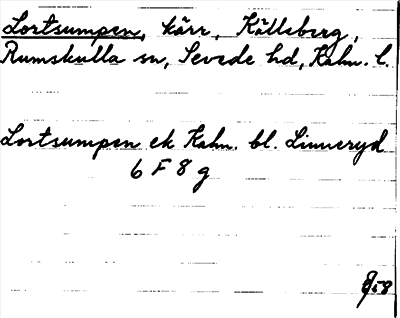 Lortsumpen, kärr, Källeberg,
Rumskulla sn, Sevede hd, Kalm. l.
Lortsumpen ek Kalm. bl. Linneryd
6 F 8 g